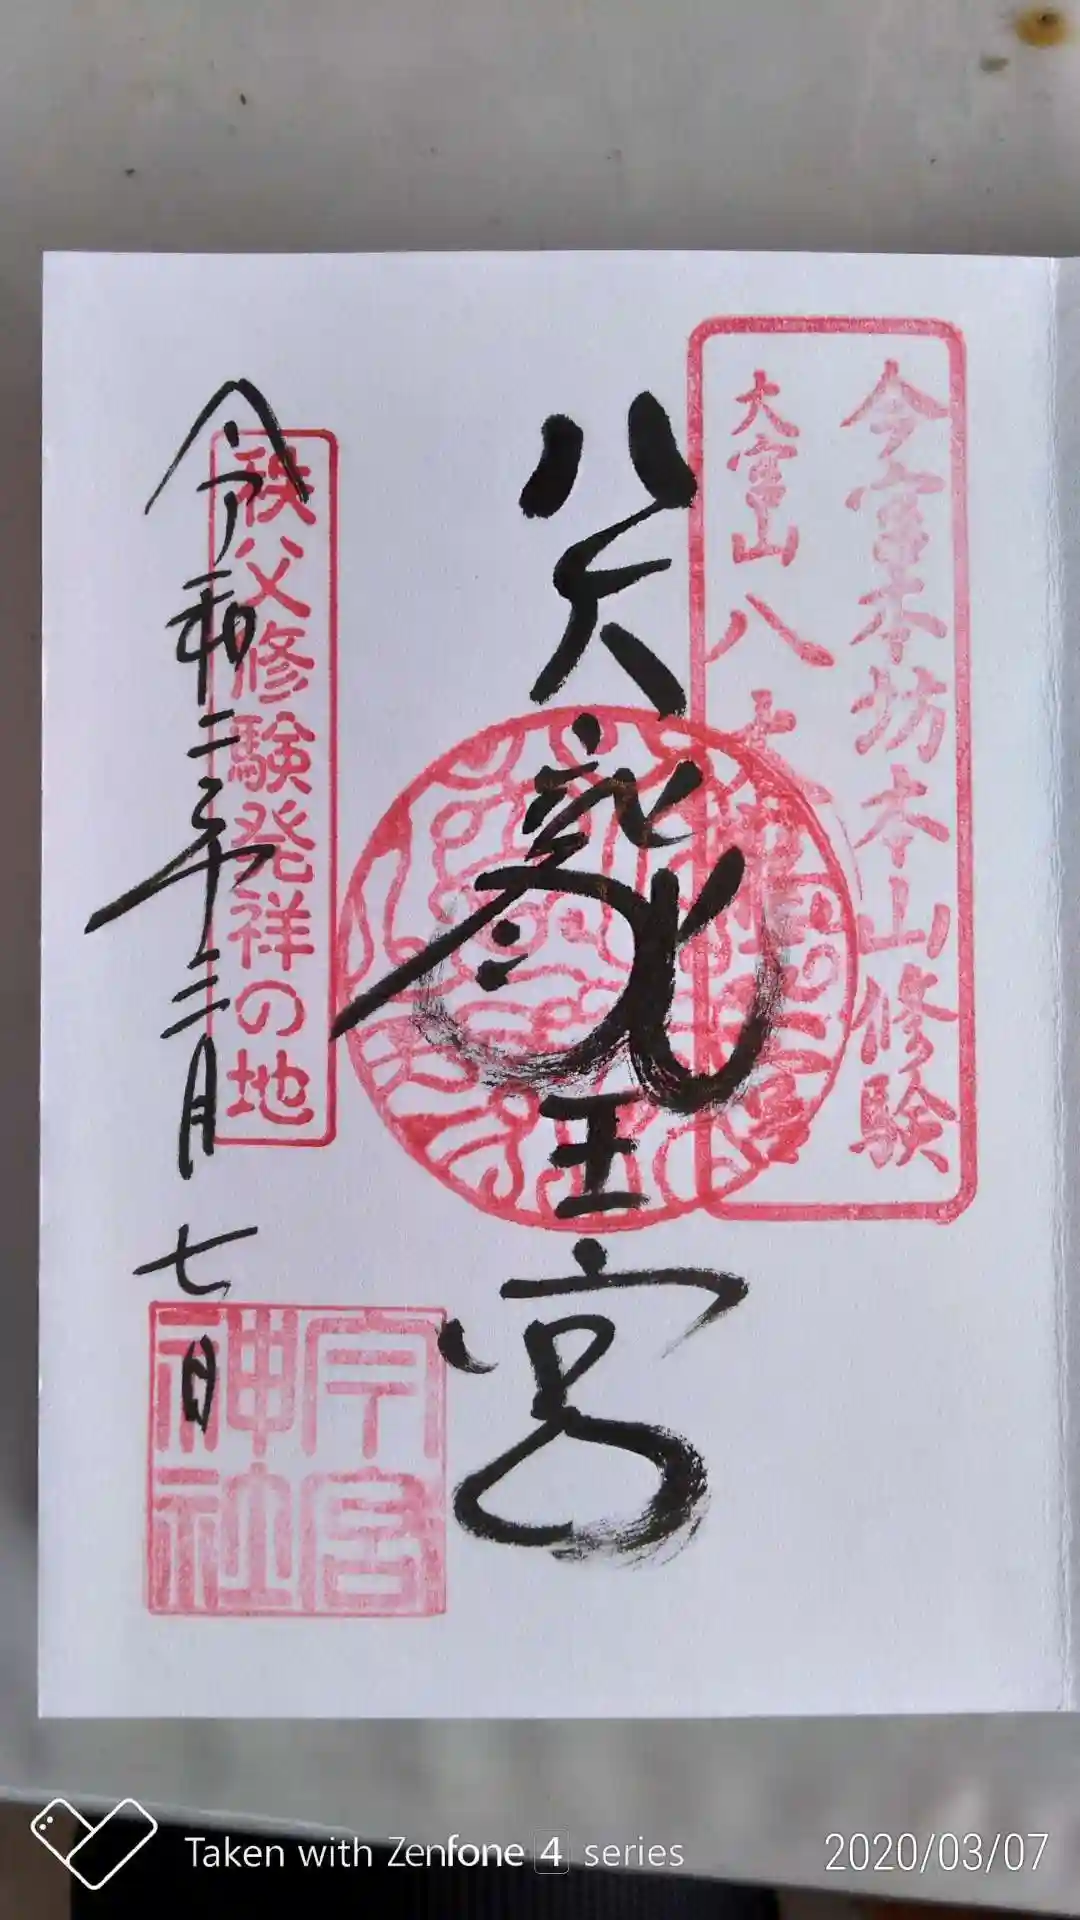 今宮本坊本山修験
大宮山八大龍王宮
八大龍王宮
秩父修験発祥の地
令和二年三月七日
今宮
神社
Taken with Zenfone 4 series
2020/03/07